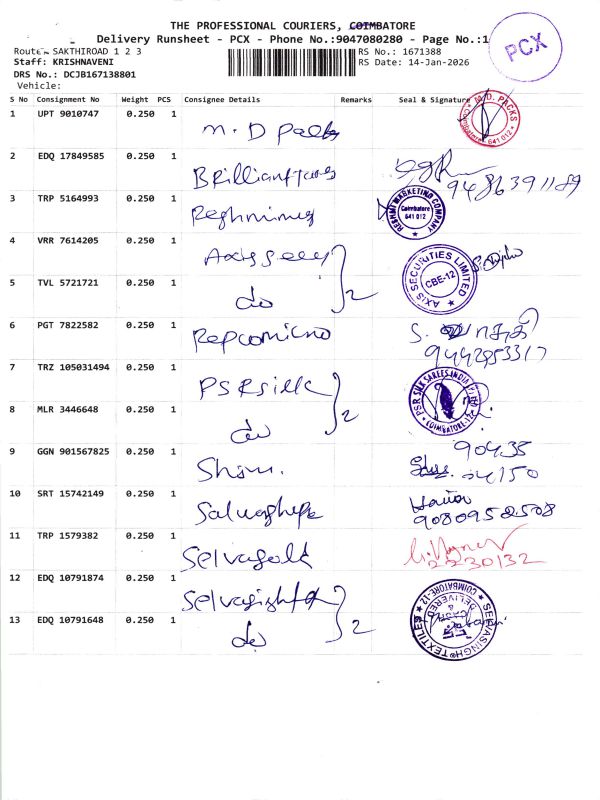 THE PROFESSIONAL COURIERS, COIMBATORE
Delivery Runsheet - PCX - Phone No.:9047080280 - Page No.:1
PCX
Route: SAKTHIROAD 1 2 3
RS No.: 1671388
Staff: KRISHNAVENI
RS Date: 14-Jan-2026
DRS No.: DCJB167138801
Vehicle:
S No Consignment No Weight PCS Consignee Details Remarks Seal & Signature
1 UPT 9010747 0.250 1 M.D Packs M.D. PACKS Coimbatore - 641 012
2 EDQ 17849585 0.250 1
9486391189
3 TRP 5164993 0.250 1 RESHMI MARKETING COMPANY Coimbatore 641 012
4 VRR 7614205 0.250 1 AXIS SECURITIES LIMITED CBE-12
5 TVL 5721721 0.250 1 do 2
6 PGT 7822582 0.250 1 Repcomicno
9442953317
7 TRZ 105031494 0.250 1 PSR silk PSR SILK SAREES INDIA COIMBATORE-12
8 MLR 3446648 0.250 1 do 2
9 GGN 901567825 0.250 1 90435
24150
10 SRT 15742149 0.250 1
9080958508
11 TRP 1579382 0.250 1 Selvagold
2230132
12 EDQ 10791874 0.250 1 COIMBATORE-12 DELIVERED
13 EDQ 10791648 0.250 1 do 2 TEXTILES